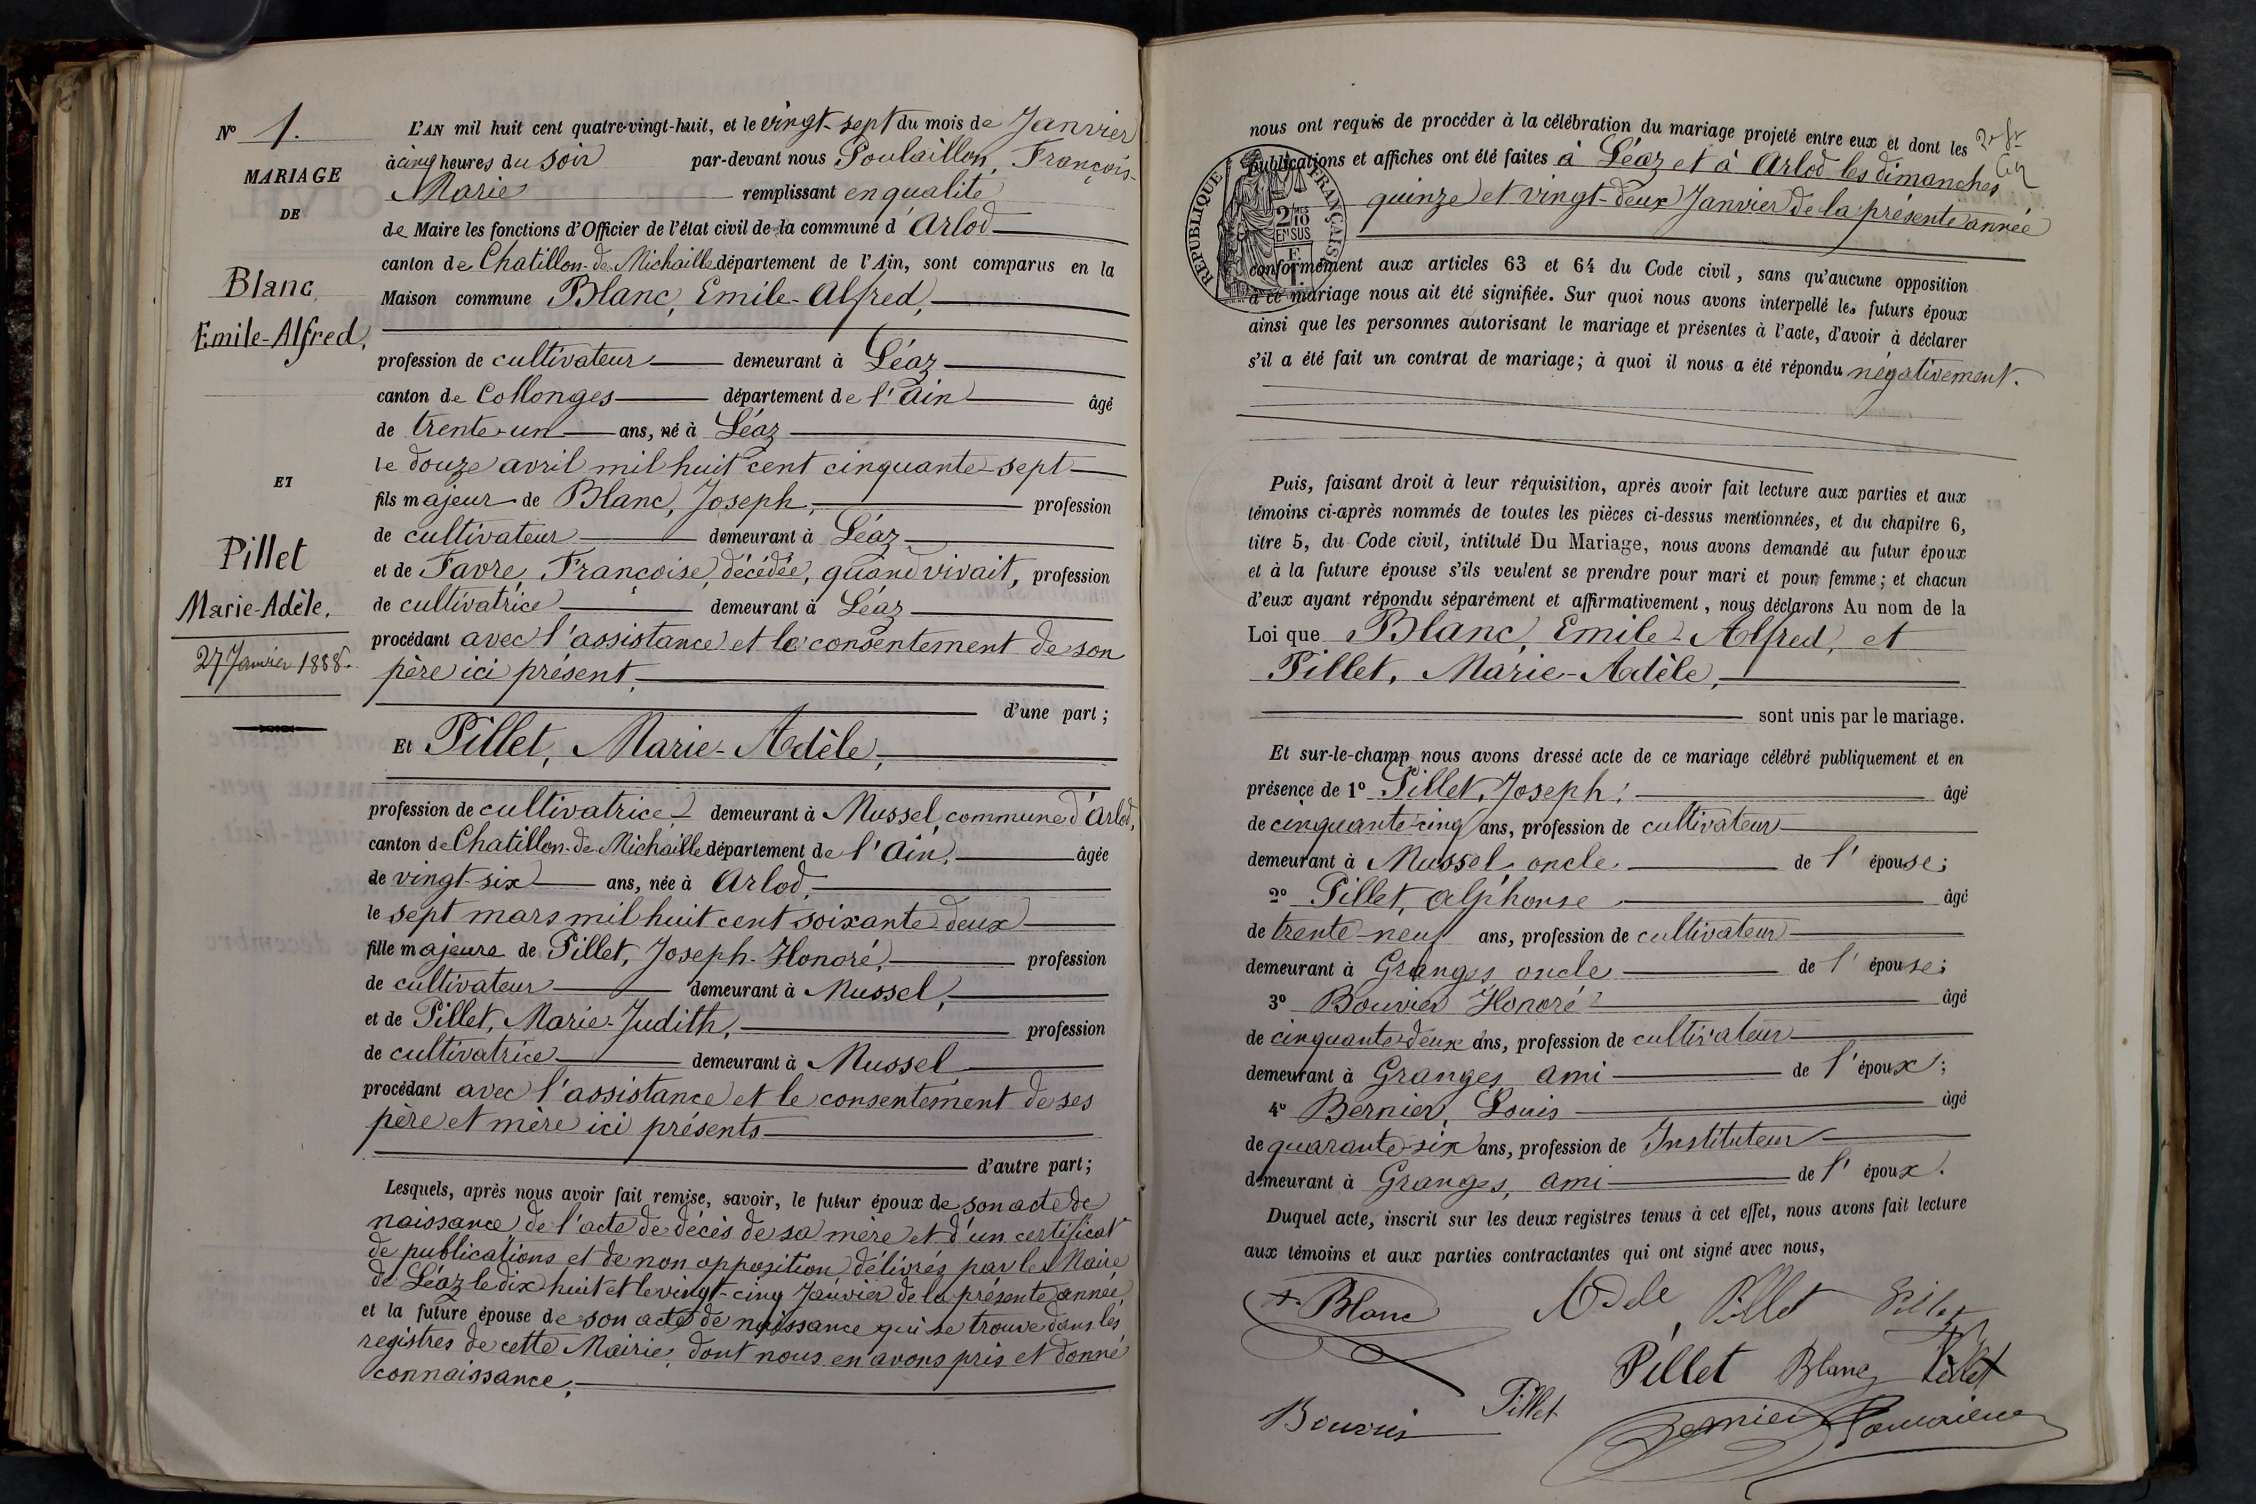 N° 1.
MARIAGE
DE
Blanc,
Emile-Alfred,
ET
Pillet
Marie-Adèle.
27 Janvier 1888.
L'AN mil huit cent quatre-vingt-huit, et le vingt-sept du mois de Janvier
à cinq heures du soir par-devant nous Poulaillon, François-
Marie remplissant en qualité
de Maire les fonctions d'Officier de l'état civil de la commune d'Arlod
canton de Chatillon-de-Michaille département de l'Ain, sont comparus en la
Maison commune Blanc, Emile-Alfred,
profession de cultivateur demeurant à Léaz
canton de Collonges département de l'Ain âgé
de trente-un ans, né à Léaz
le douze avril mil huit cent cinquante-sept
fils majeur de Blanc, Joseph, profession
de cultivateur demeurant à Léaz
et de Favre, Françoise, décédée, quand vivait, profession
de cultivatrice demeurant à Léaz
procédant avec l'assistance et le consentement de son
père ici présent,
d'une part;
Et Pillet, Marie-Adèle,
profession de cultivatrice demeurant à Mussel, commune d'Arlod,
canton de Chatillon-de-Michaille département de l'Ain, âgée
de vingt-six ans, née à Arlod,
le sept mars mil huit cent soixante-deux
fille majeure de Pillet, Joseph-Honoré, profession
de cultivateur demeurant à Mussel,
et de Pillet, Marie-Judith, profession
de cultivatrice demeurant à Mussel
procédant avec l'assistance et le consentement de ses
père et mère ici présents
d'autre part;
Lesquels, après nous avoir fait remise, savoir, le futur époux de son acte de
naissance de l'acte de décès de sa mère et d'un certificat
de publications et de non opposition délivrés par le Maire
de Léaz le dix huit et le vingt-cinq Janvier de la présente année,
et la future épouse de son acte de naissance qui se trouve dans les
registres de cette Mairie, dont nous en avons pris et donné
connaissance,
nous ont requis de procéder à la célébration du mariage projeté entre eux et dont les
publications et affiches ont été faites à Léaz et à Arlod les dimanches
quinze et vingt-deux Janvier de la présente année
RÉPUBLIQUE FRANÇAISE
2/10
EN SUS
conformément aux articles 63 et 64 du Code civil, sans qu'aucune opposition
à ce mariage nous ait été signifiée. Sur quoi nous avons interpellé les futurs époux
ainsi que les personnes autorisant le mariage et présentes à l'acte, d'avoir à déclarer
s'il a été fait un contrat de mariage; à quoi il nous a été répondu négativement.
Puis, faisant droit à leur réquisition, après avoir fait lecture aux parties et aux
témoins ci-après nommés de toutes les pièces ci-dessus mentionnées, et du chapitre 6,
titre 5, du Code civil, intitulé Du Mariage, nous avons demandé au futur époux
et à la future épouse s'ils veulent se prendre pour mari et pour femme; et chacun
d'eux ayant répondu séparément et affirmativement, nous déclarons Au nom de la
Loi que Blanc, Emile-Alfred, et
Pillet, Marie-Adèle,
sont unis par le mariage.
Et sur-le-champ nous avons dressé acte de ce mariage célébré publiquement et en
présence de 1° Pillet, Joseph, âgé
de cinquante-cinq ans, profession de cultivateur
demeurant à Mussel, oncle de l'épouse;
2° Pillet, Alphonse âgé
de trente-neuf ans, profession de cultivateur
demeurant à Granges, oncle de l'épouse;
3° Bouvier Honoré âgé
de cinquante-deux ans, profession de cultivateur
demeurant à Granges, ami de l'époux;
4° Bernier, Louis âgé
de quarante-six ans, profession de Instituteur
demeurant à Granges, ami de l'époux.
Duquel acte, inscrit sur les deux registres tenus à cet effet, nous avons fait lecture
aux témoins et aux parties contractantes qui ont signé avec nous,
Blanc Adele Pillet Pillet
Pillet Blanc Pillet
Bouvier Pillet Bernier